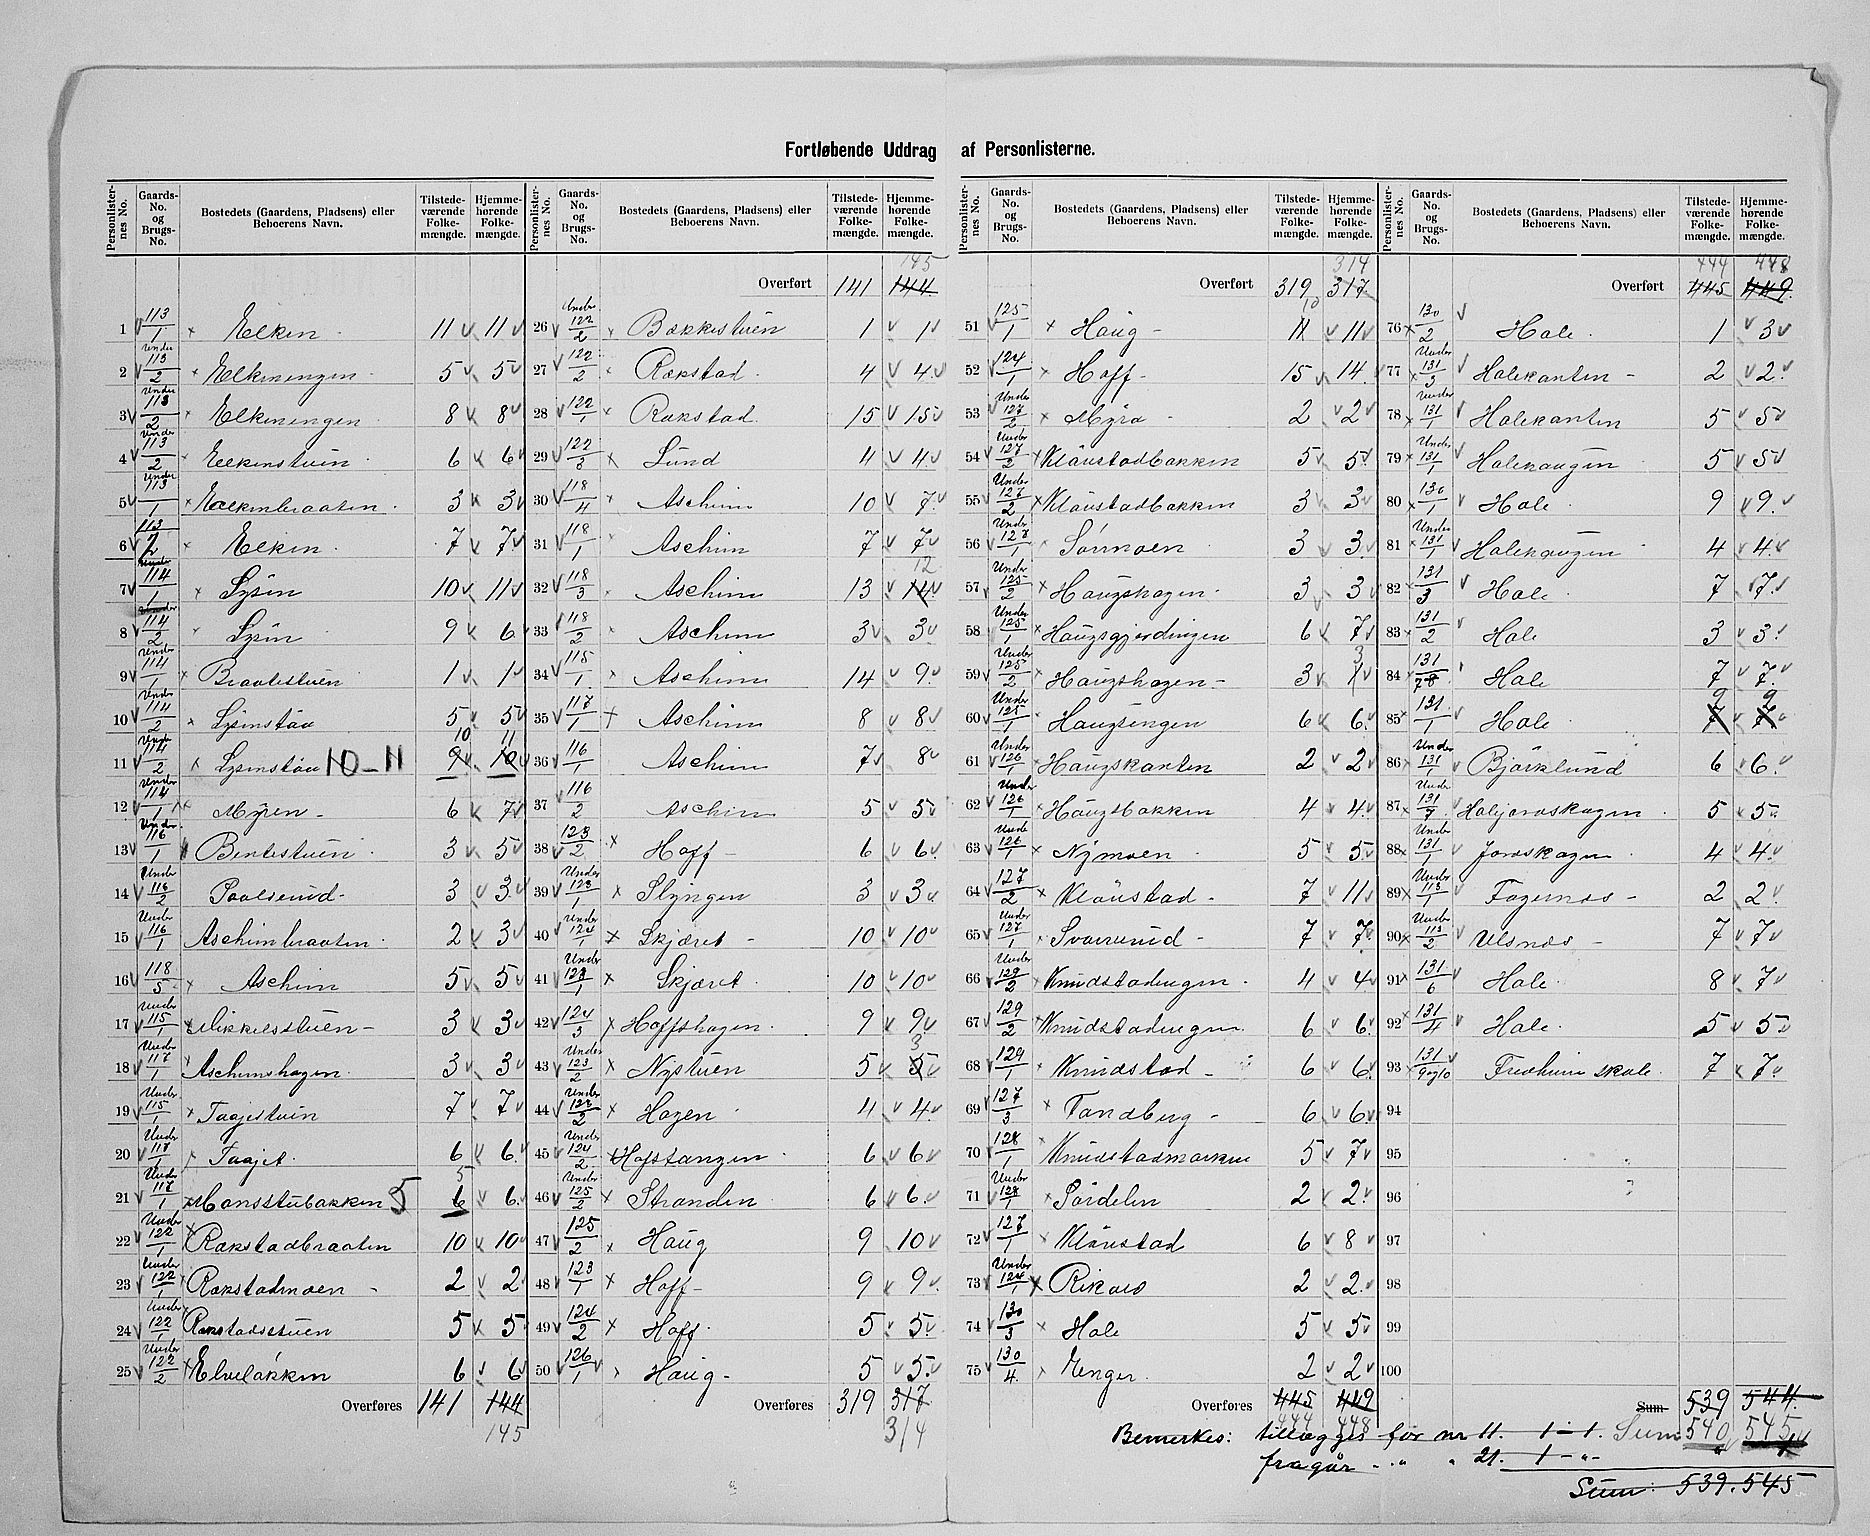 Fortløbende Uddrag af Personlisterne.
Personlister-nes No. | Gaards-No. og Brugs-No. | Bostedets (Gaardens, Pladsens) eller Beboerens Navn. | Tilstede-værende Folke-mængde. | Hjemme-hørende Folke-mængde.
1 113/1 Elken 11 11
2 Under 113/2 Elkenengen 5 5
3 Under 113/2 Elkenengen 8 8
4 Under 113/2 Elkenstuen 6 6
5 Under 113/1 Elkenbraaten 3 3
6 113/2 Elken 7 7
7 Under 114/1 Lysen 10 11
8 114/2 Lysen 9 6
9 Under 114/1 Braatestuen 1 1
10 Under 114/2 Lysenstøa 5 5
11 Under 114/2 Lysenstøa 10-11 9 10 10 11
12 Under 114/1 Myren 6 7
13 Under 116/1 Bentestuen 3 5
14 Under 116/2 Paalserud 3 3
15 Under 116/1 Aschimbraaten 2 3
16 118/5 Aschim 5 5
17 Under 115/1 Mikkelsstuen 3 3
18 Under 117/1 Aschimshagen 3 3
19 Under 115/1 Taajestuen 7 7
20 Under 117/1 Taajet 6 6
21 Under 117/1 Monsstubakken 5 5 6 6
22 Under 122/1 Rakstadbraaten 10 10
23 Under 122/1 Rakstadmoen 2 2
24 Under 122/1 Rakstadstuen 5 5
25 Under 122/2 Elvebakken 6 6
Overføres 141 144
145
Personlister-nes No. | Gaards-No. og Brugs-No. | Bostedets (Gaardens, Pladsens) eller Beboerens Navn. | Tilstede-værende Folke-mængde. | Hjemme-hørende Folke-mængde.
145
Overført 141 144
26 Under 122/2 Bakkestuen 1 1
27 122/2 Rakstad 4 4
28 122/1 Rakstad 15 15
29 122/3 Lund 4 4
30 118/4 Aschim 10 7
31 118/1 Aschim 7 7
32 118/3 Aschim 13 14 12
33 118/2 Aschim 3 3
34 118/1 Aschim 14 9
35 117/1 Aschim 8 8
36 116/1 Aschim 7 8
37 116/2 Aschim 5 5
38 123/2 Hoff 6 6
39 Under 123/1 Slyngen 3 3
40 Under 124/1 Skjæret 10 10
41 Under 123/1 Skjæret 10 10
42 124/3 Hoffshagen 9 9
43 Under 123/2 Nystuen 5 5 3
44 Under 123/2 Hagen 4 4
45 Under 124/2 Hofstangen 6 6
46 Under 125/2 Stranden 6 6
47 125/2 Haug 9 10
48 123/1 Hoff 9 9
49 124/2 Hoff 5 5
50 126/1 Haug 5 5
Overføres 319 317
314
Personlister-nes No. | Gaards-No. og Brugs-No. | Bostedets (Gaardens, Pladsens) eller Beboerens Navn. | Tilstede-værende Folke-mængde. | Hjemme-hørende Folke-mængde.
314
Overført 319 317
51 125/1 Haug 11 10 11
52 124/1 Hoff 15 14
53 Under 127/2 Myra 2 2
54 Under 127/2 Klaustadbakken 5 5
55 Under 127/2 Klaustadbakken 3 3
56 Under 127/1 Sørmoen 3 3
57 Under 125/2 Haugshagen 3 3
58 Under 125/1 Haugsgjerdingen 6 7
59 Under 125/2 Haugshagen 3 1 3
60 Under 125/1 Haugsengen 6 6
61 Under 126/1 Haugskanten 2 2
62 Under 126/1 Haugsbakken 4 4
63 Under 126/1 Nymoen 5 5
64 127/2 Klaustad 7 11
65 Under 127/1 Svarverud 7 7
66 Under 129/2 Knudstadengen 4 4
67 129/2 Knudstadengen 6 6
68 129/1 Knudstad 6 6
69 127/3 Tandberg 6 6
70 128/1 Knudstadmarken 5 7
71 Under 128/1 Sørdelen 2 2
72 127/1 Klaustad 6 8
73 Under 124/1 Rikard 2 2
74 130/3 Hole 5 5
75 130/4 Enger 2 2
Overføres 445 449
444 448
Personlister-nes No. | Gaards-No. og Brugs-No. | Bostedets (Gaardens, Pladsens) eller Beboerens Navn. | Tilstede-værende Folke-mængde. | Hjemme-hørende Folke-mængde.
444 448
Overført 445 449
76 130/2 Hole 1 3
77 Under 131/3 Holekanten 2 2
78 Under 131/1 Holekanten 5 5
79 Under 131/1 Holehaugen 5 5
80 130/1 Hole 9 9
81 Under 131/1 Holehaugen 4 4
82 131/3 Hole 7 7
83 131/2 Hole 3 3
84 131/78 Hole 7 7
85 131/1 Hole 7 9 7 9
86 Under 131/1 Bjørklund 6 6
87 Under 131/7 Holejordskagen 5 5
88 Under 131/1 Jordskagen 4 4
89 Under 113/1 Fagernes 2 2
90 Under 113/2 Ulsnes 7 7
91 131/6 Hole 8 7
92 131/4 Hole 5 5
93 131/9og10 Fredheim skole 7 7
94
95
96
97
98
99
100
Sum 539 544
Bemerkes: tillægges for nr 11. 1 - 1. Sum 540 545
fragår " " 21. 1 - "
Sum: 539. 545